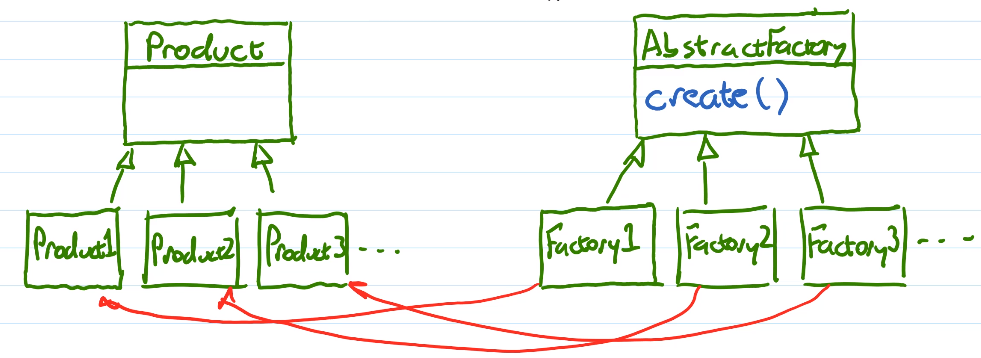 Product
AbstractFactory
create()
Product1
Product2
Product3
...
Factory1
Factory2
Factory3
----